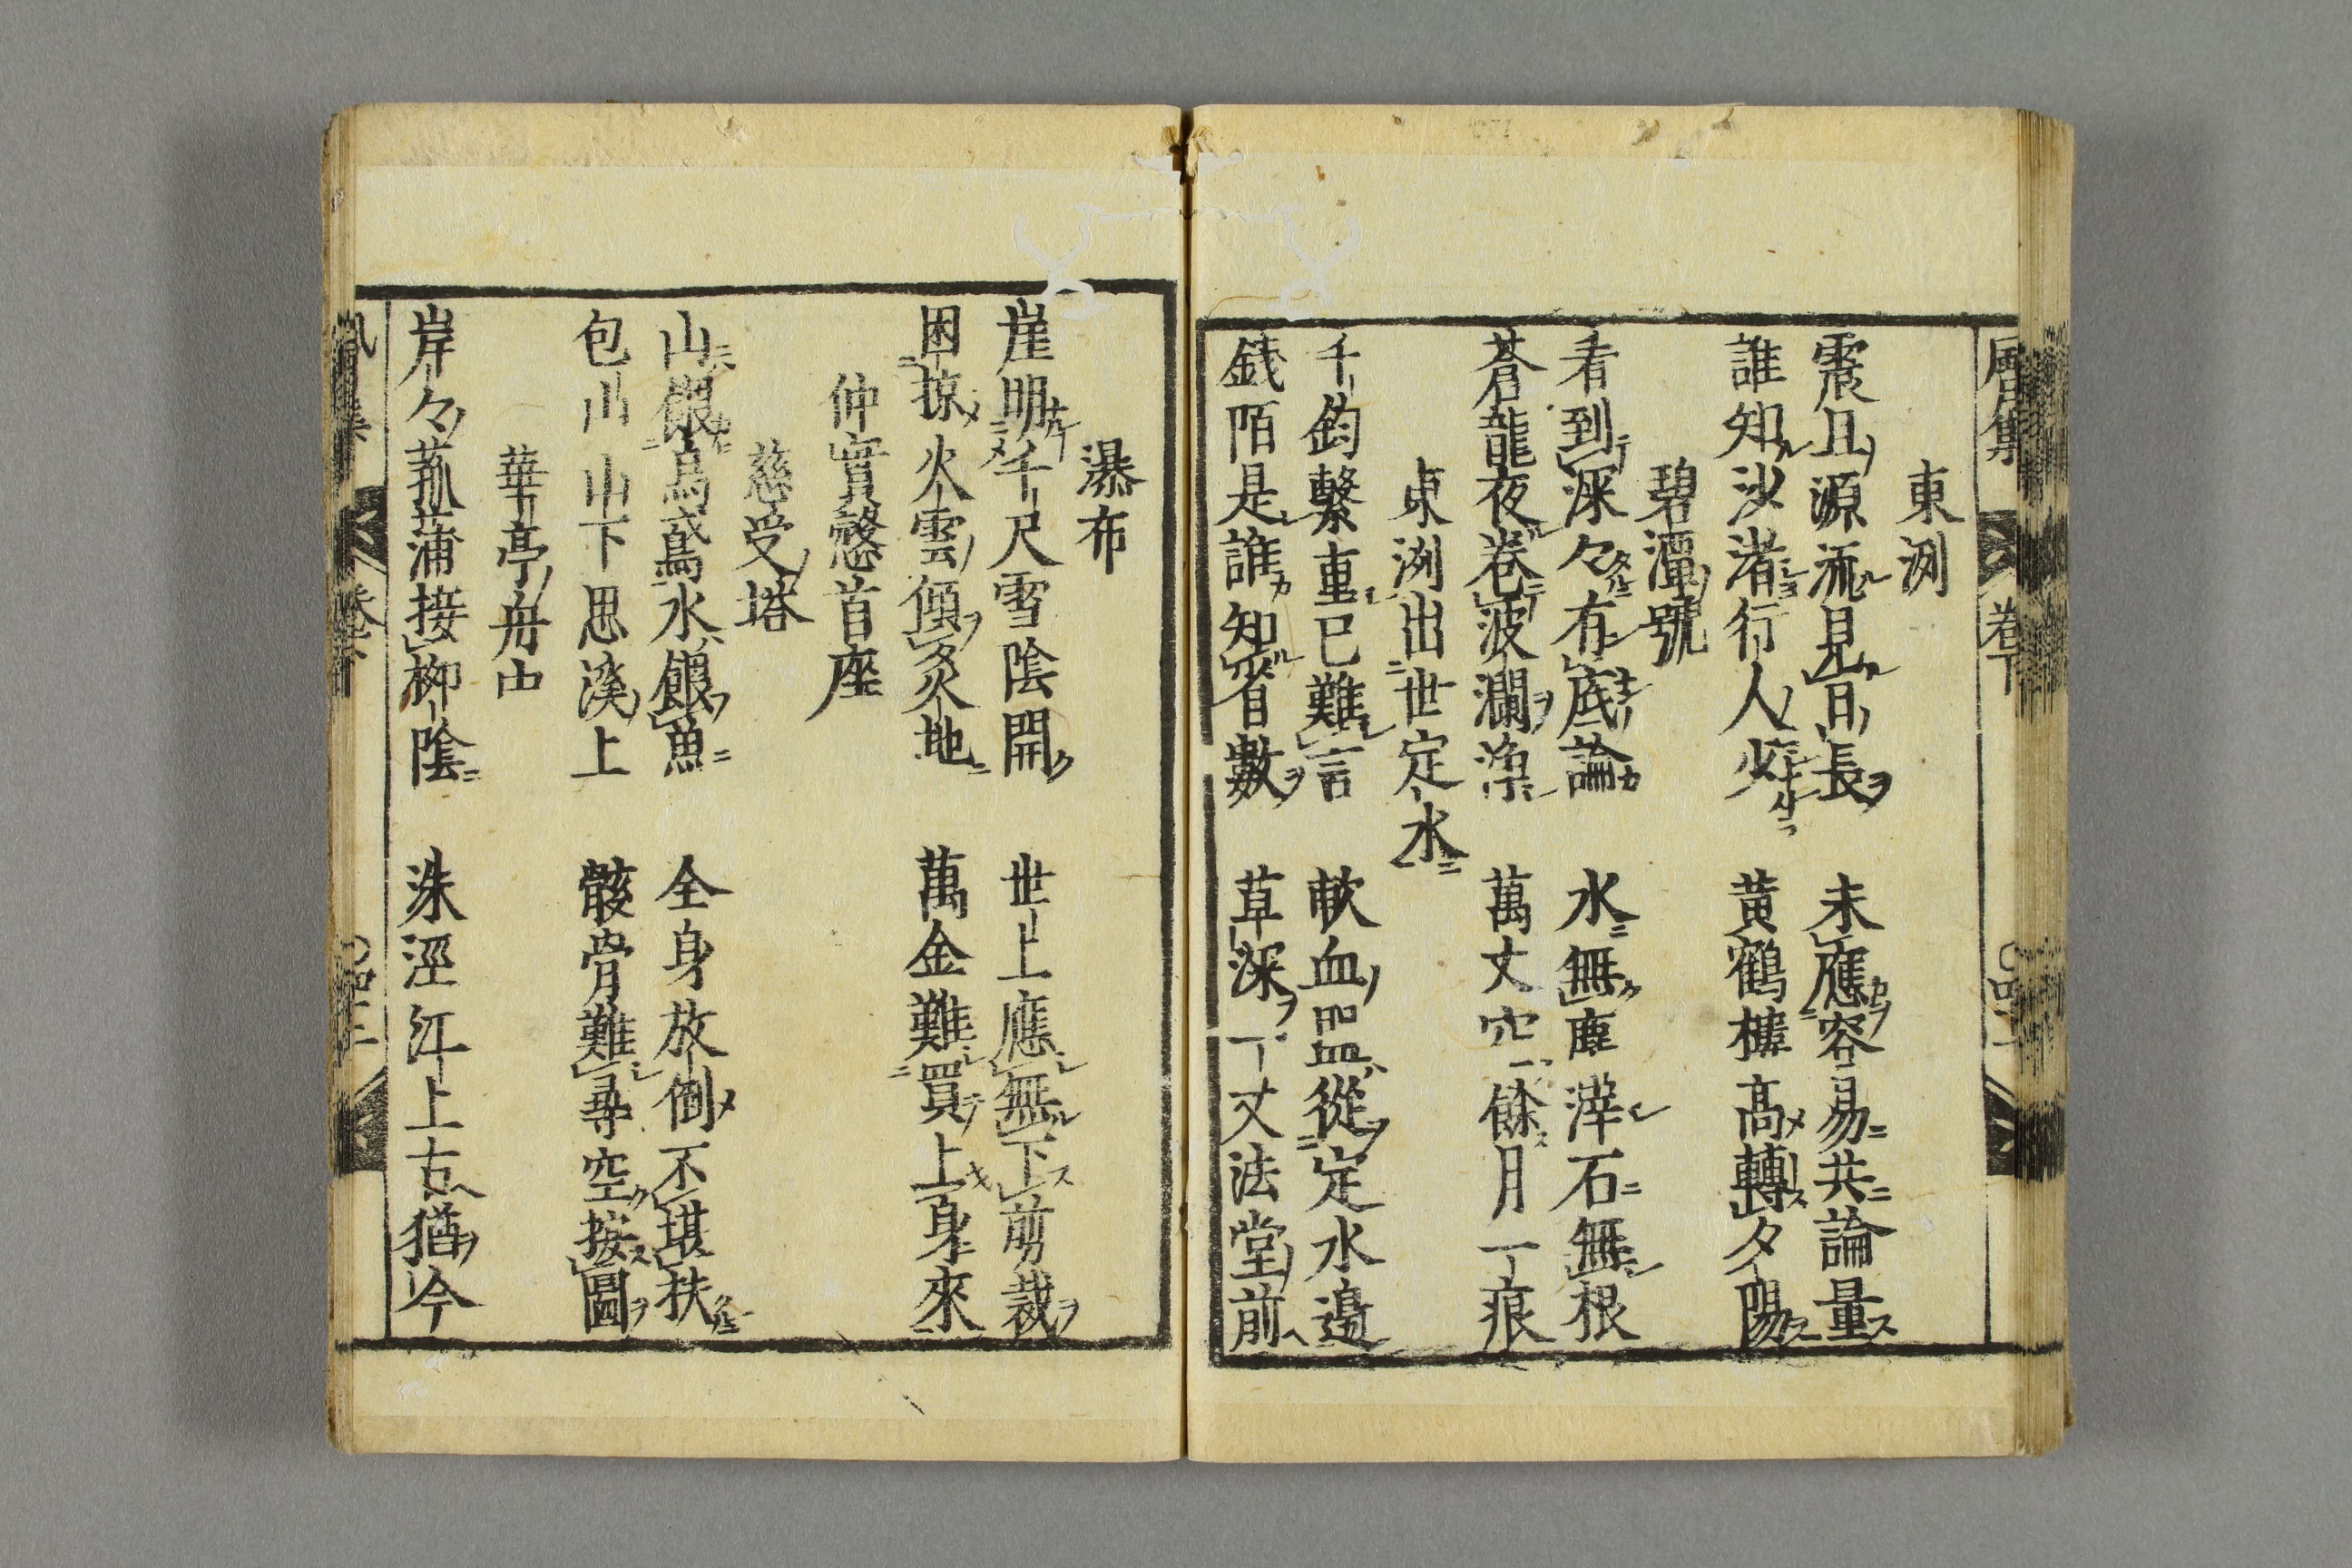 東洌
震旦源流見百長　未應容易共論量
誰知沙渚行人少　黄鶴樓高轉夕陽
碧潭號
看到深々有底論　水無塵滓石無根
蒼龍夜卷波瀾淨　萬丈空餘月一痕
東洌出世定水
千鈞繋重已難言　軟血品從定水邉
錢陌是誰知省數　草深一丈法堂前
瀑布
崖明千尺雪陰開　世上應無下剪裁
困掠火雲傾炙地　萬金難買上身來
仲實慇首座
慈受塔
山餵烏鳶水餵魚　全身放倒不堪扶
包山山下思溪上　骸骨難尋空按圖
華亭舟中
岸々菰蒲接柳陰　洙涇江上古猶今